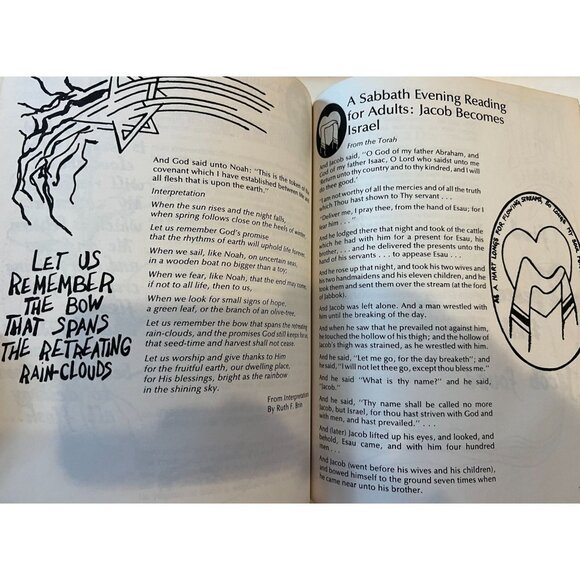 And God said unto Noah: "This is the token of the
covenant which I have established between Me and
all flesh that is upon the earth."
Interpretation
When the sun rises and the night falls,
when spring follows close on the heels of winter,
Let us remember God's promise
that the rhythms of earth will uphold life forever.
When we sail, like Noah, on uncertain seas,
in a wooden boat no bigger than a toy;
When we fear, like Noah, that the end may come,
if not to all life, then to us,
When we look for small signs of hope,
a green leaf, or the branch of an olive-tree,
Let us remember the bow that spans the retreating
rain-clouds, and the promises God still keeps for us,
that seed-time and harvest shall not cease.
Let us worship and give thanks to Him
for the fruitful earth, our dwelling place,
for His blessings, bright as the rainbow
in the shining sky.
From Interpretations
By Ruth F. Brin
LET US
REMEMBER
THE BOW
THAT SPANS
THE RETREATING
RAIN-CLOUDS
A Sabbath Evening Reading
for Adults: Jacob Becomes
Israel
From the Torah
And Jacob said, "O God of my father Abraham, and
God of my father Isaac, O Lord who saidst unto me
'Return unto thy country and to thy kindred, and I will
do thee good.'
"I am not worthy of all the mercies and of all the truth
which Thou hast shown to Thy servant . . .
"Deliver me, I pray thee, from the hand of Esau; for I
fear him . . ."
And he lodged there that night and took of the cattle
which he had with him for a present for Esau, his
brother . . . and he delivered the presents unto the
hand of his servants . . . to appease Esau . . .
And he rose up that night, and took his two wives and
his two handmaidens and his eleven children and he
took them and sent them over the stream (at the ford
of Jabbok).
And Jacob was left alone. And a man wrestled with
him until the breaking of the day.
And when he saw that he prevailed not against him,
he touched the hollow of his thigh; and the hollow of
Jacob's thigh was strained, as he wrestled with him.
And he said, "Let me go, for the day breaketh"; and
he said, "I will not let thee go, except thou bless me."
And he said "What is thy name?" and he said,
"Jacob."
And he said, "Thy name shall be called no more
Jacob, but Israel, for thou hast striven with God and
with men, and hast prevailed." . . .
And (later) Jacob lifted up his eyes, and looked, and
behold, Esau came, and with him four hundred
men . . .
And Jacob (went before his wives and his children),
and bowed himself to the ground seven times when
he came near unto his brother.
AS A HART LONGS FOR FLOWING STREAMS, SO LONGS MY SOUL